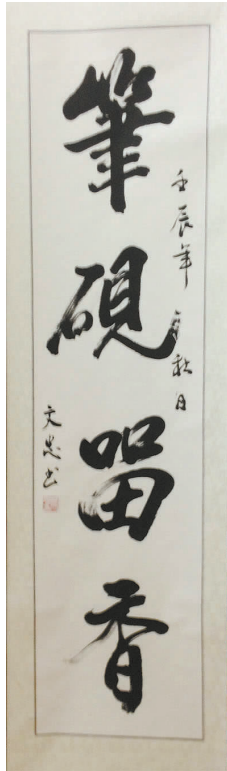 筆硯留香
壬辰年夏秋日
文忠书